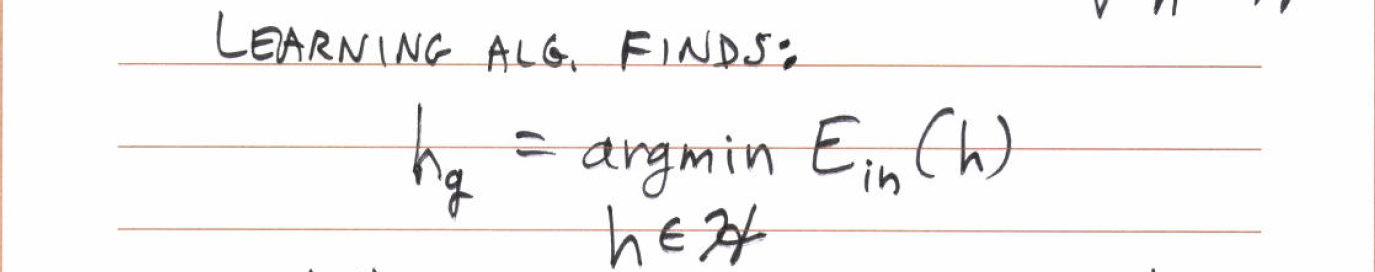 LEARNING ALG. FINDS:
h_g = argmin E_in (h)
h ∈ ℋ